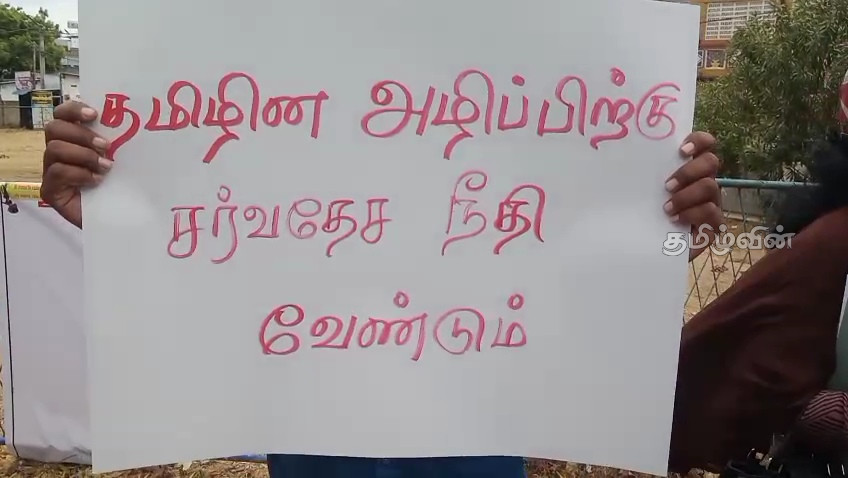 தமிழின அழிப்பிற்கு
சர்வதேச நீதி
வேண்டும்
தமிழ்வின்